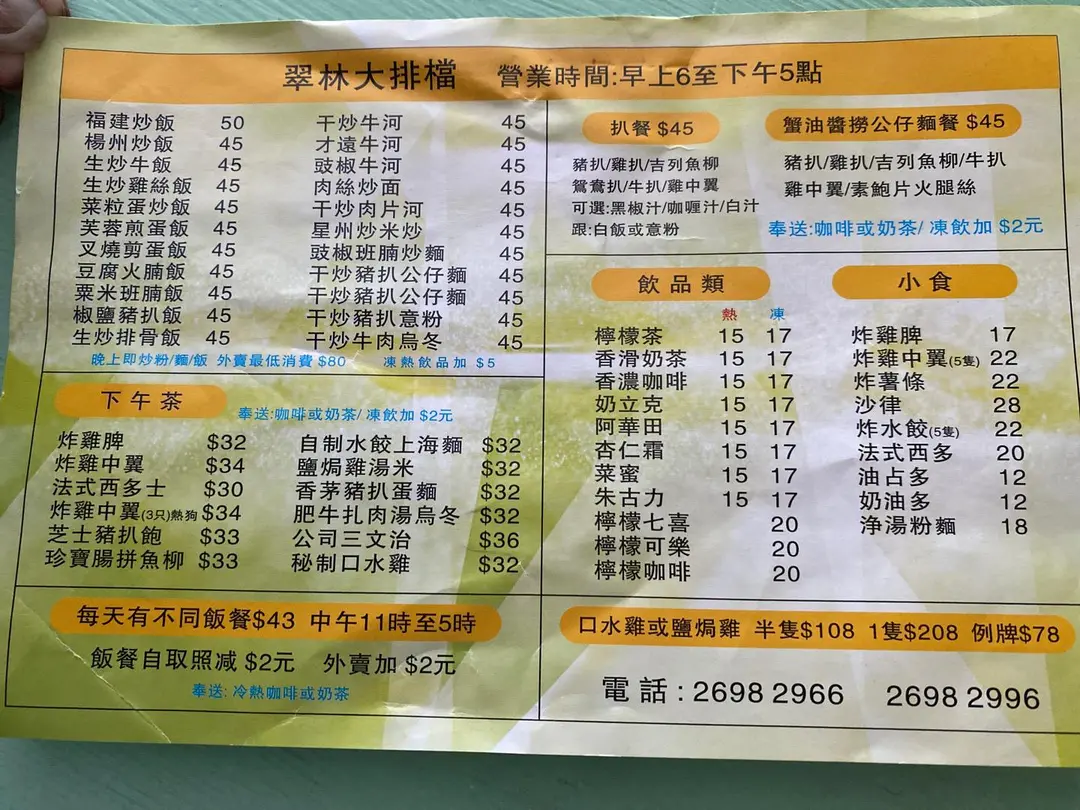 翠林大排檔 營業時間:早上6至下午5點
福建炒飯 50
楊州炒飯 45
生炒牛飯 45
生炒雞絲飯 45
菜粒蛋炒飯 45
芙蓉煎蛋飯 45
叉燒剪蛋飯 45
豆腐火腩飯 45
粟米班腩飯 45
椒鹽豬扒飯 45
生炒排骨飯 45
干炒牛河 45
才遠牛河 45
豉椒牛河 45
肉絲炒面 45
干炒肉片河 45
星州炒米炒 45
豉椒班腩炒麵 45
干炒豬扒公仔麵 45
干炒豬扒公仔麵 45
干炒豬扒意粉 45
干炒牛肉烏冬 45
晚上即炒粉/麵/飯 外賣最低消費 $80 凍熱飲品加 $5
扒餐 $45
豬扒/雞扒/吉列魚柳
鴛鴦扒/牛扒/雞中翼
可選:黑椒汁/咖喱汁/白汁
跟:白飯或意粉
蟹油醬撈公仔麵餐 $45
豬扒/雞扒/吉列魚柳/牛扒
雞中翼/素鮑片火腿絲
奉送:咖啡或奶茶/ 凍飲加 $2元
下午茶
奉送:咖啡或奶茶/ 凍飲加 $2元
炸雞脾 $32
炸雞中翼 $34
法式西多士 $30
炸雞中翼(3只)熱狗 $34
芝士豬扒飽 $33
珍寶腸拼魚柳 $33
自制水餃上海麵 $32
鹽焗雞湯米 $32
香茅豬扒蛋麵 $32
肥牛扎肉湯烏冬 $32
公司三文治 $36
秘制口水雞 $32
飲品類
熱 凍
檸檬茶 15 17
香滑奶茶 15 17
香濃咖啡 15 17
奶立克 15 17
阿華田 15 17
杏仁霜 15 17
菜蜜 15 17
朱古力 15 17
檸檬七喜 20
檸檬可樂 20
檸檬咖啡 20
小食
炸雞脾 17
炸雞中翼(5隻) 22
炸薯條 22
沙律 28
炸水餃(5隻) 22
法式西多 20
油占多 12
奶油多 12
淨湯粉麵 18
每天有不同飯餐$43 中午11時至5時
飯餐自取照減 $2元 外賣加 $2元
奉送: 冷熱咖啡或奶茶
口水雞或鹽焗雞 半隻$108 1隻$208 例牌$78
電話:2698 2966 2698 2996